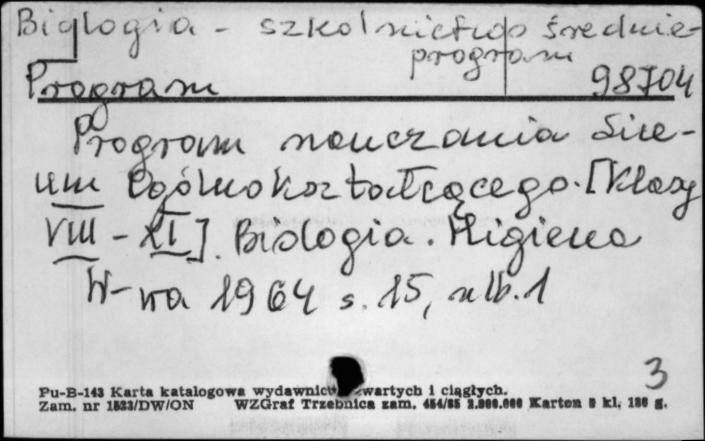 Biologia - szkolnictwo średnie-
program
Program 98704
Program nauczania Lice-
um Ogólnokształcącego. [Klasy
VIII - XI]. Biologia. Higiena
W-wa 1964 s. 15, nlb. 1
3
Pu-B-143 Karta katalogowa wydawnictw zwartych i ciągłych.
Zam. nr 1523/DW/ON WZGraf Trzebnica zam. 454/85 2.000.000 Karton kl. 180 g.